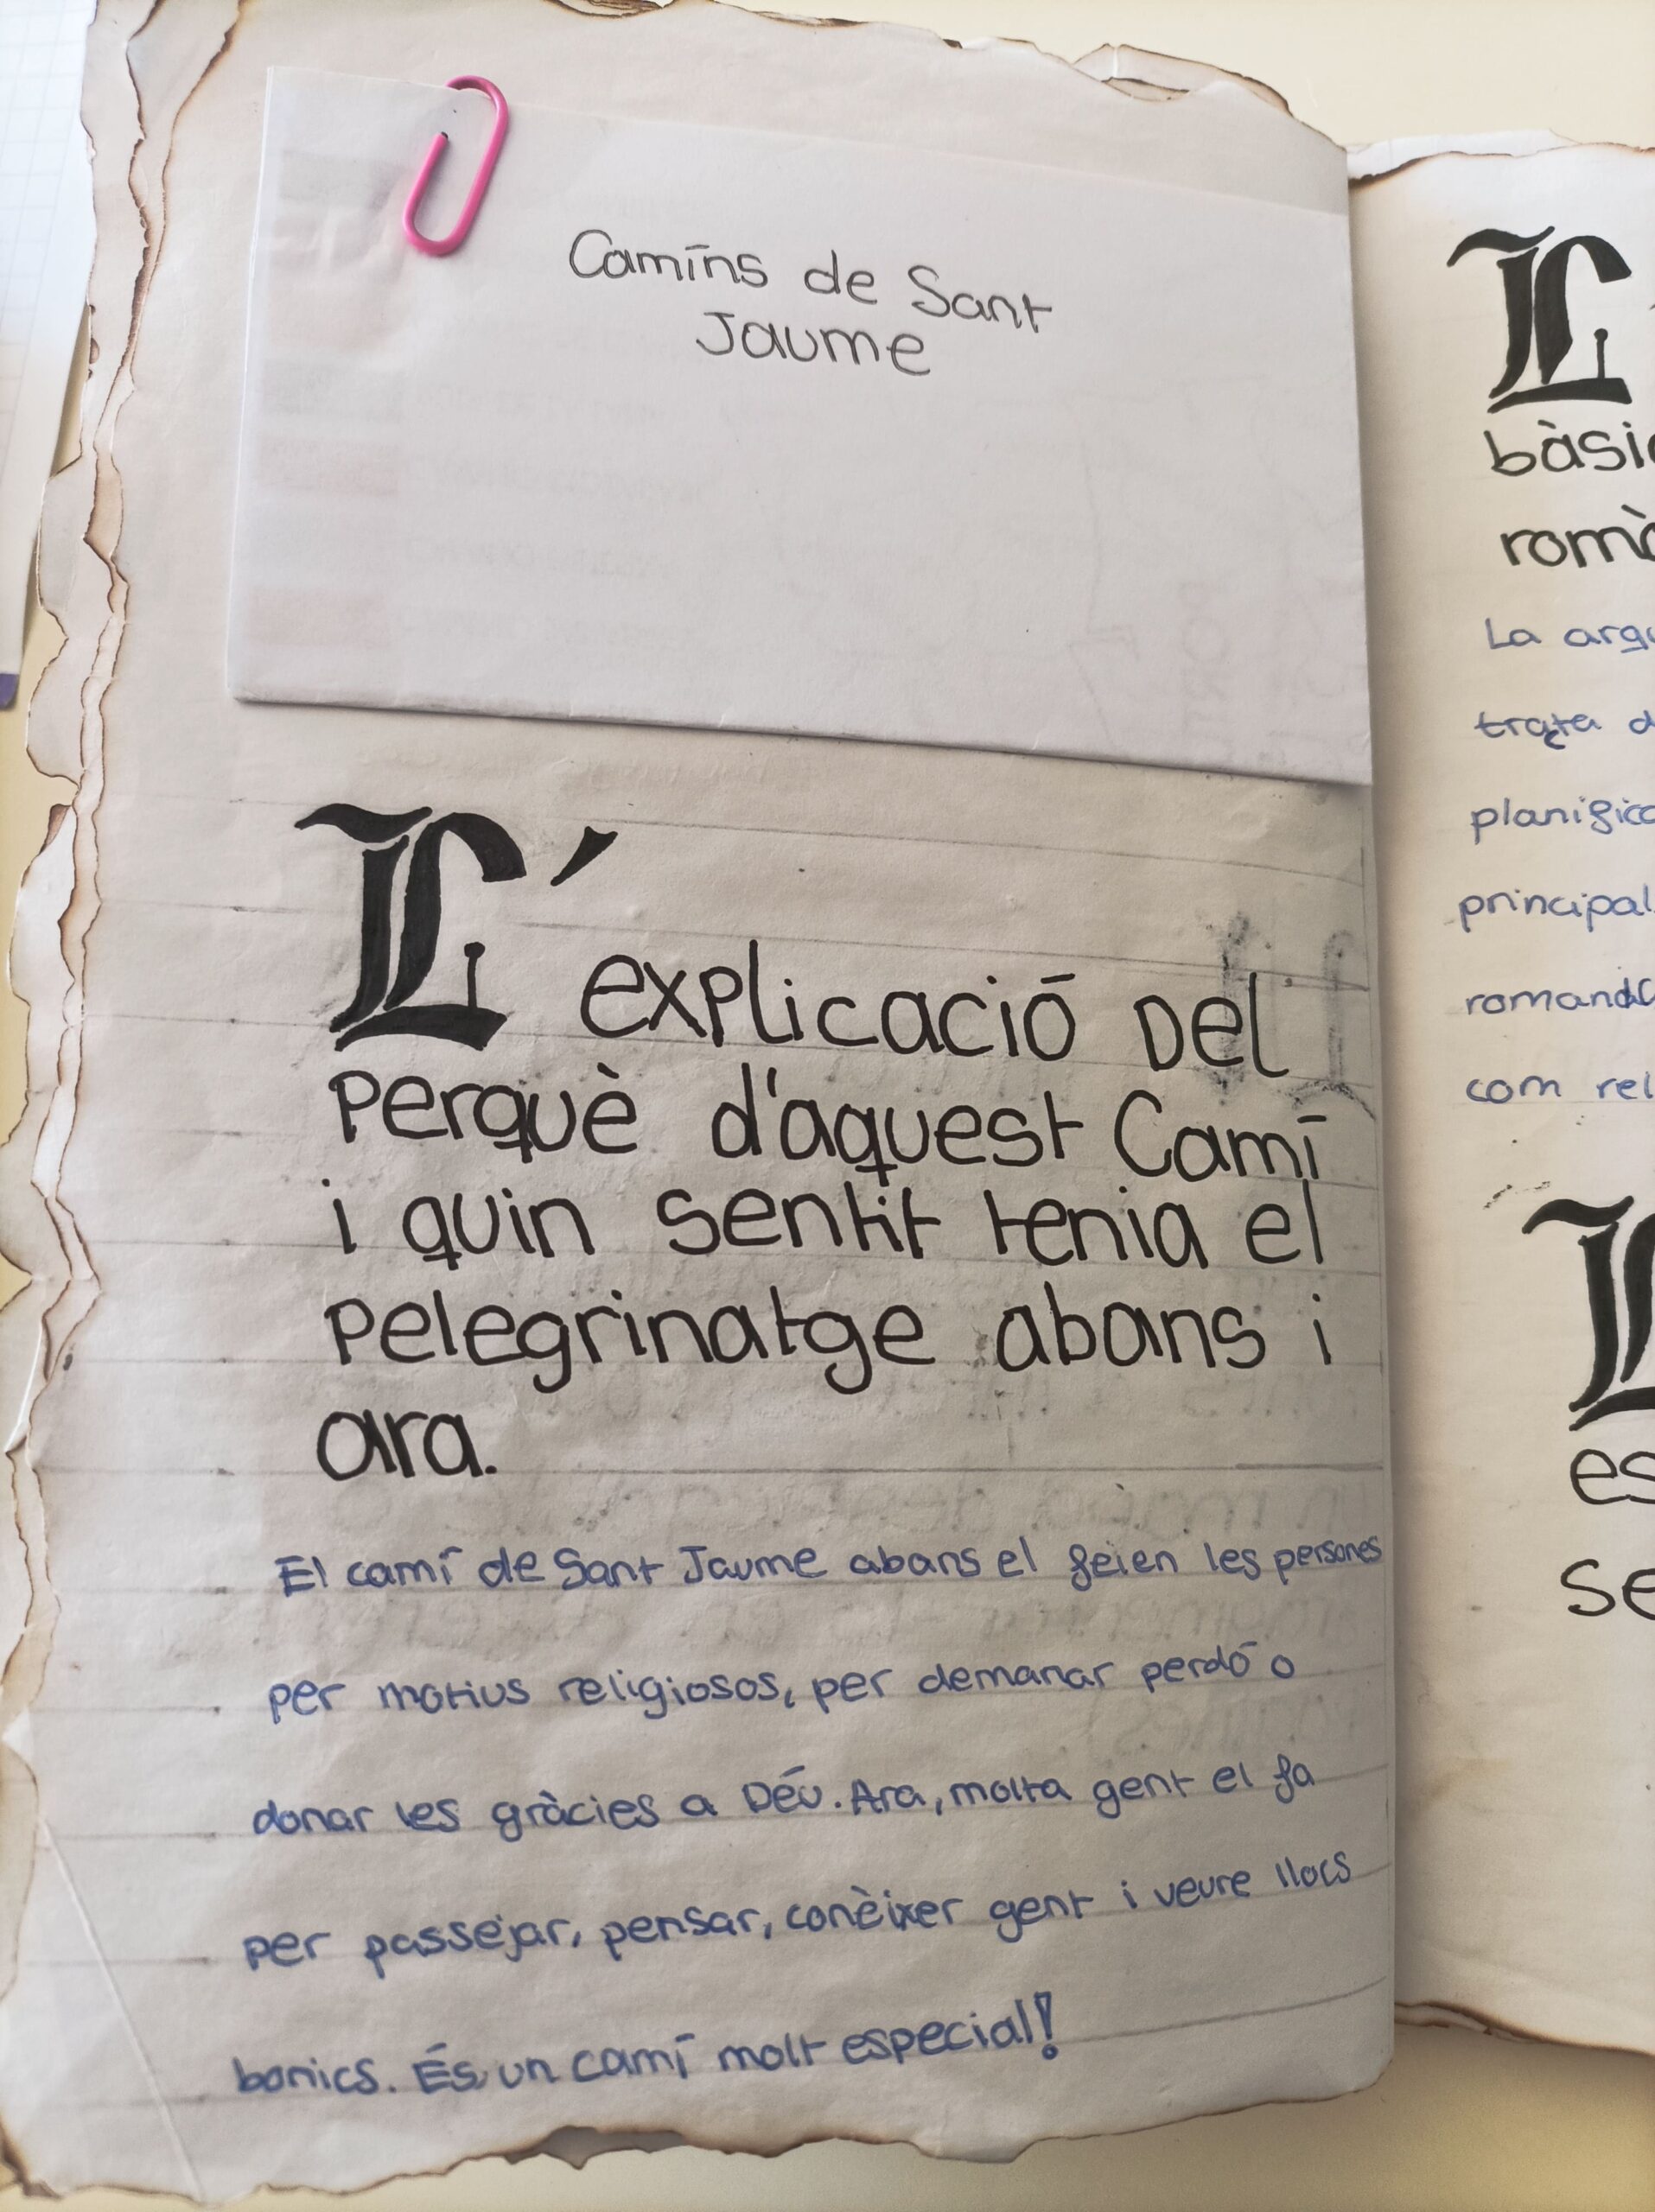 Camíns de Sant
Jaume
L'explicació del
perquè d'aquest Camí
i quin sentit tenia el
pelegrinatge abans i
ara.
El camí de Sant Jaume abans el feien les persones
per motius religiosos, per demanar perdó o
donar les gràcies a Déu. Ara, molta gent el fa
per passejar, pensar, conèixer gent i veure llocs
bonics. És un camí molt especial!
L
bàsi
rom
La arq
trata d
planific
principal
com rel
L
es
se